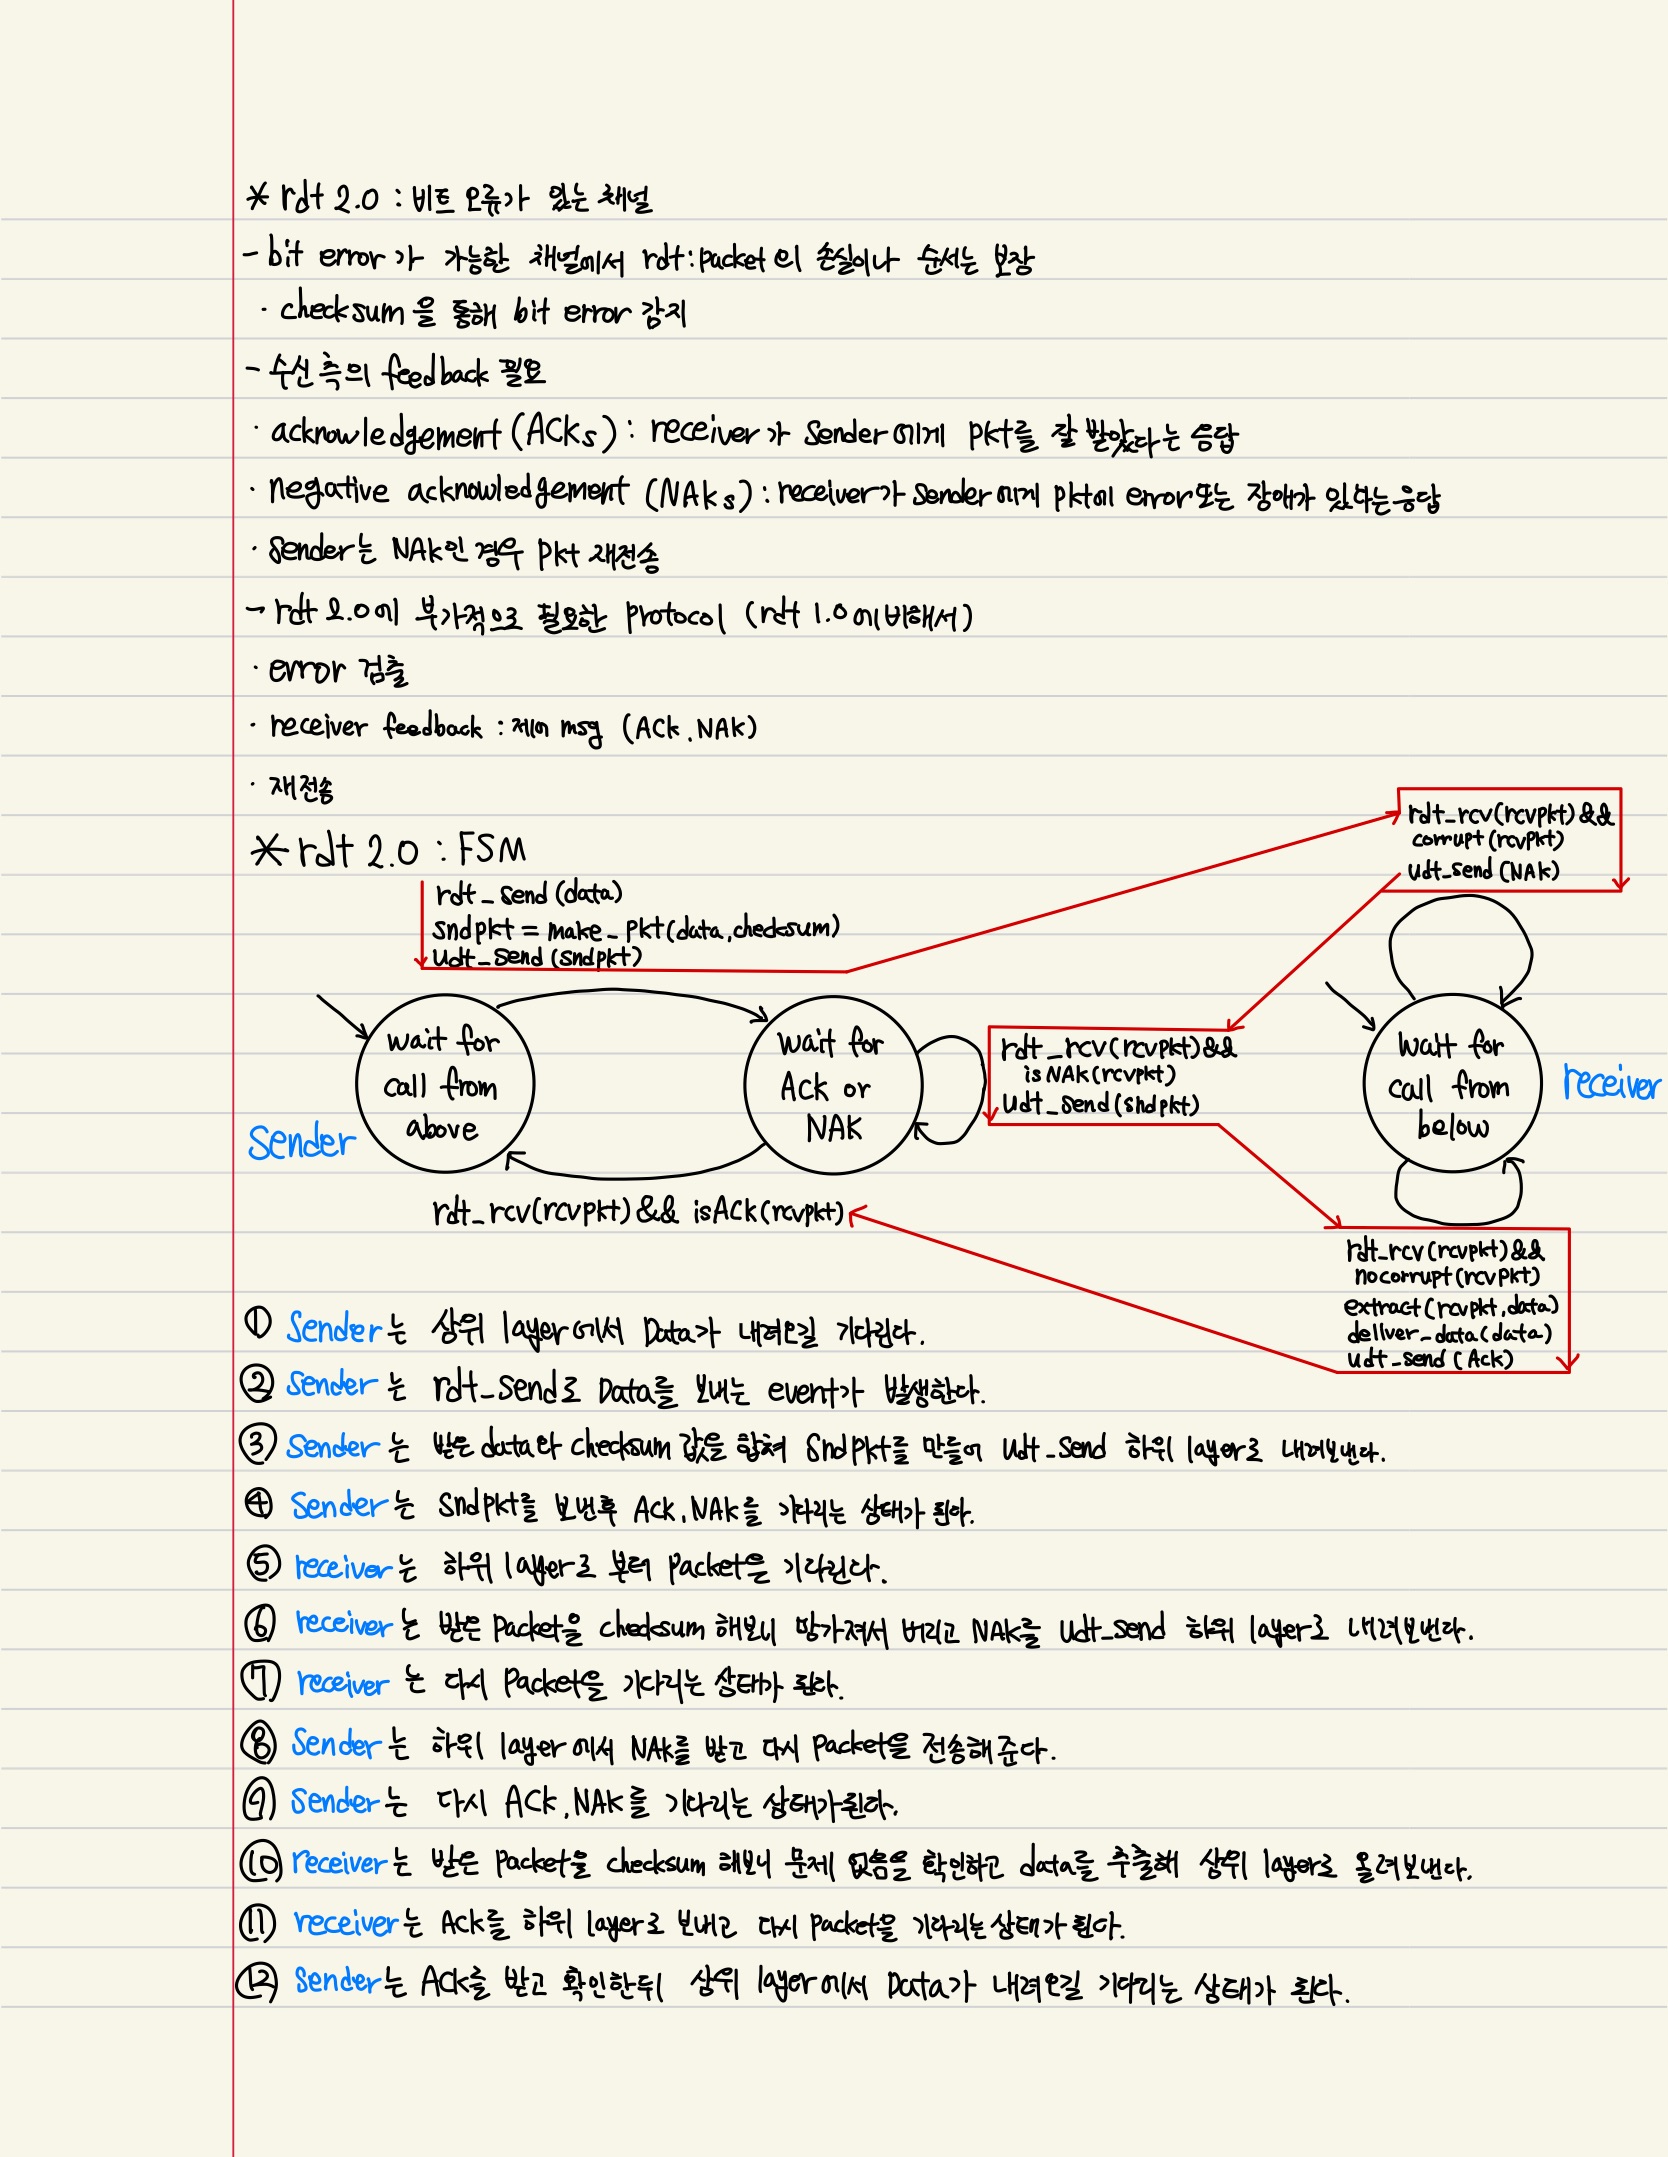 * rdt 2.0 : 비트 오류가 있는 채널
- bit error가 가능한 채널에서 rdt : packet의 손실이나 순서는 보장
· checksum을 통해 bit error 감지
- 수신 측의 feedback 필요
· acknowledgement (ACKs) : receiver가 sender에게 pkt를 잘 받았다는 응답
· negative acknowledgement (NAKs) : receiver가 sender에게 pkt에 error또는 장애가 있다는 응답
· sender는 NAK인 경우 pkt 재전송
- rdt 2.0에 부가적으로 필요한 protocol (rdt 1.0에 비해서)
· error 검출
· receiver feedback : 제어 msg (ACK, NAK)
· 재전송
* rdt 2.0 : FSM
rdt_send(data)
sndpkt = make_pkt(data,checksum)
udt_send(sndpkt)
rdt_rcv(rcvpkt)&&
corrupt(rcvpkt)
udt_send(NAK)
sender
wait for
call from
above
wait for
ACK or
NAK
rdt_rcv(rcvpkt)&&
isNAK(rcvpkt)
udt_send(sndpkt)
wait for
call from
below
receiver
rdt_rcv(rcvpkt) && isACK(rcvpkt)
rdt_rcv(rcvpkt)&&
nocorrupt(rcvpkt)
extract(rcvpkt,data)
deliver_data(data)
udt_send(ACK)
① Sender는 상위 layer에서 Data가 내려오길 기다린다.
② Sender는 rdt_send로 Data를 보내는 event가 발생한다.
③ Sender는 받은 data와 checksum 값을 합쳐 sndpkt를 만들어 udt_send 하위 layer로 내려보낸다.
④ Sender는 sndpkt를 보낸후 ACK, NAK를 기다리는 상태가 된다.
⑤ receiver는 하위 layer로 부터 packet을 기다린다.
⑥ receiver는 받은 packet을 checksum 해보니 망가져서 버리고 NAK를 udt_send 하위 layer로 내려보낸다.
⑦ receiver는 다시 packet을 기다리는 상태가 된다.
⑧ Sender는 하위 layer에서 NAK를 받고 다시 packet을 전송해 준다.
⑨ Sender는 다시 ACK, NAK를 기다리는 상태가 된다.
⑩ receiver는 받은 packet을 checksum 해보니 문제 없음을 확인하고 data를 추출해 상위 layer로 올려보낸다.
⑪ receiver는 ACK를 하위 layer로 보내고 다시 packet을 기다리는 상태가 된다.
⑫ Sender는 ACK를 받고 확인한뒤 상위 layer에서 Data가 내려오길 기다리는 상태가 된다.